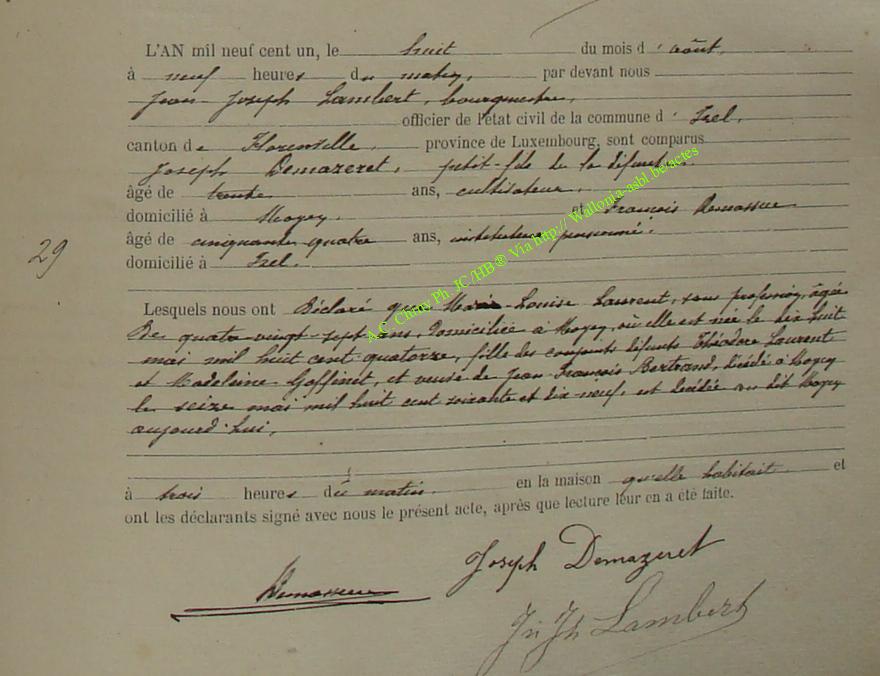 L'AN mil neuf cent un, le huit du mois d'août,
à neuf heures du matin, par devant nous
Jean-Joseph Lambert, bourgmestre,
officier de l'état civil de la commune d'Izel,
canton de Florenville, province de Luxembourg, sont comparus
Joseph Demazeret, petit-fils de la défunte,
âgé de trente ans, cultivateur,
domicilié à Moyen. et François Remassue
âgé de cinquante quatre ans, instituteur pensionné.
domicilié à Izel.
29
Lesquels nous ont Déclaré que Marie-Louise Laurent, sans profession, âgée
De quatre-vingt-sept ans, domiciliée à Moyen, où elle est née le dix huit
mai mil huit cent quatorze, fille des conjoints défunts Théodore Laurent
et Madeleine Goffinet, et veuve de Jean François Bertrand, décédé à Moyen
le seize mai mil huit cent soixante et dix-neuf, est décédée au dit Moyen
aujourd'hui,
à trois heures du matin. en la maison qu'elle habitait et
ont les déclarants signé avec nous le présent acte, après que lecture leur en a été faite.
Joseph Demazeret
Jn Jh Lambert
A.C. Chiny Ph JC/HB ® Via http:// Wallonia-asbl.be/actes